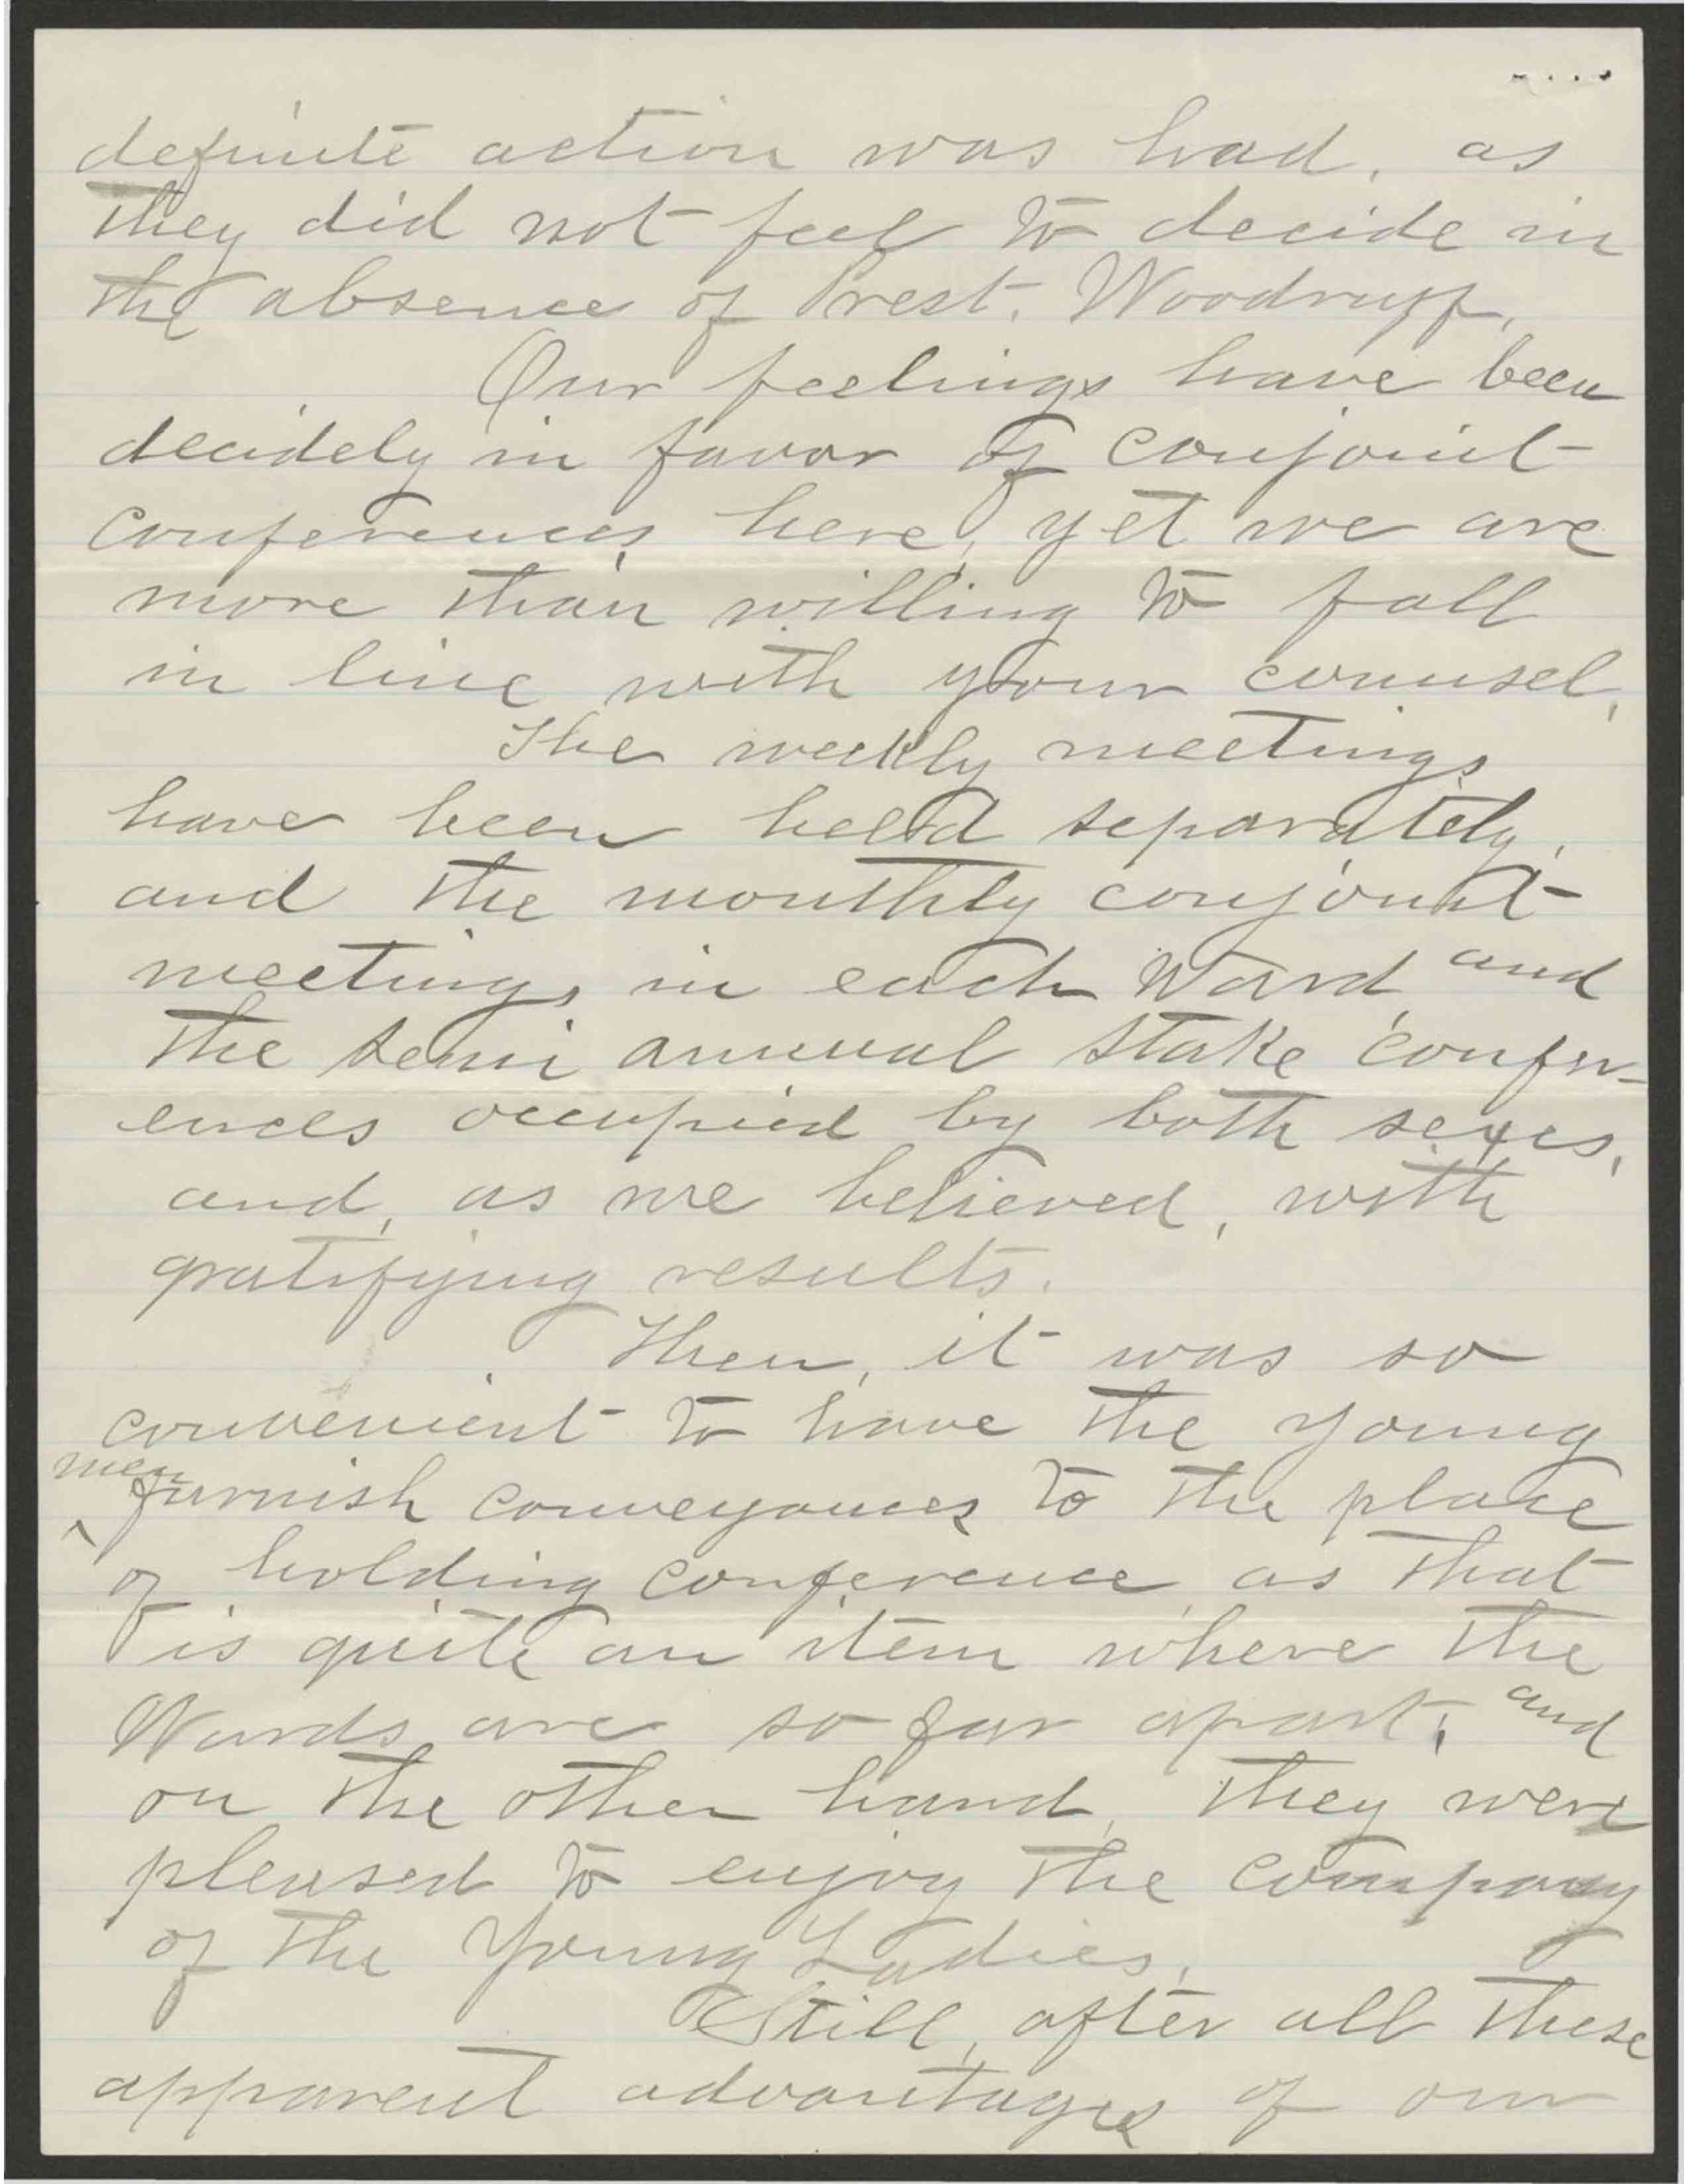 definite action was had, as
they did not feel to decide in
the absence of Prest. Woodruff,
Our feelings have been
decidely in favor of conjoint
conferences here, yet we are
more than willing to fall
in line with your counsel,
The weekly meetings
have been held separately,
and the monthly conjoint
meetings in each Ward, and
the semi annual Stake confer-
ences occupied by both sexes,
and, as we believed, with
gratifying results.
Then, it was so
convenient to have the young
men furnish conveyances to the place
of holding conference, as that
is quite an item where the
Wards are so far apart, and
on the other hand, they were
pleased to enjoy the company
of the Young Ladies,
Still, after all these
apparent advantages of our